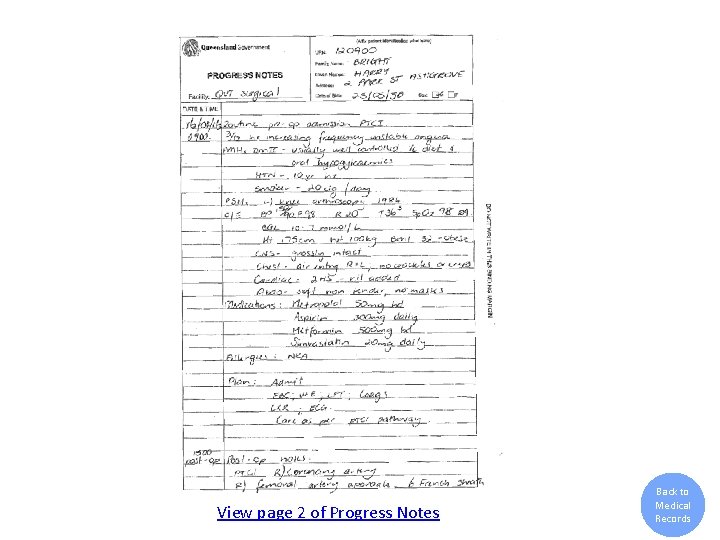 (Affix patient identification label here)
Queensland Government
URN: 120900
Family Name: BRIGHT
PROGRESS NOTES
Given Names: HARRY
Address: 2 PARK ST ASHGROVE
Facility: QUT Surgical
Date of Birth: 23/05/50 Sex: M F
DATE & TIME
Routine pre-op admission PTCI
0900. 3/12 hx increasing frequency unstable angina
PMHx DM II - usually well controlled c diet &
oral hypoglycaemics
HTN - 10yr hx
Smoker - 20cig / day
PSHx knee arthroscopy 1984
O/E P 98 R 20 T 36³ SpO2 98 RA
BGL 10.7 mmol/L
Ht 175cm Wt 100kg BMI 32 - obese
CNS - grossly intact
Chest - air entry R=L, no creps
Cardiac - 2HS - nil added
Abdo - soft non tender, no masses
Medications: Metoprolol 50mg bd
Aspirin 300mg daily
Metformin 500mg bd
Simvastatin 20mg daily
Allergies: NKA
Plan: Admit
FBC, LFT, Coags
CXR ; ECG.
Care as per PTCI pathway.
1500
post-op Post-op notes.
PTCI R) coronary artery
R) femoral artery approach French sheath
DO NOT WRITE IN THIS BINDING MARGIN
View page 2 of Progress Notes
Back to
Medical
Records